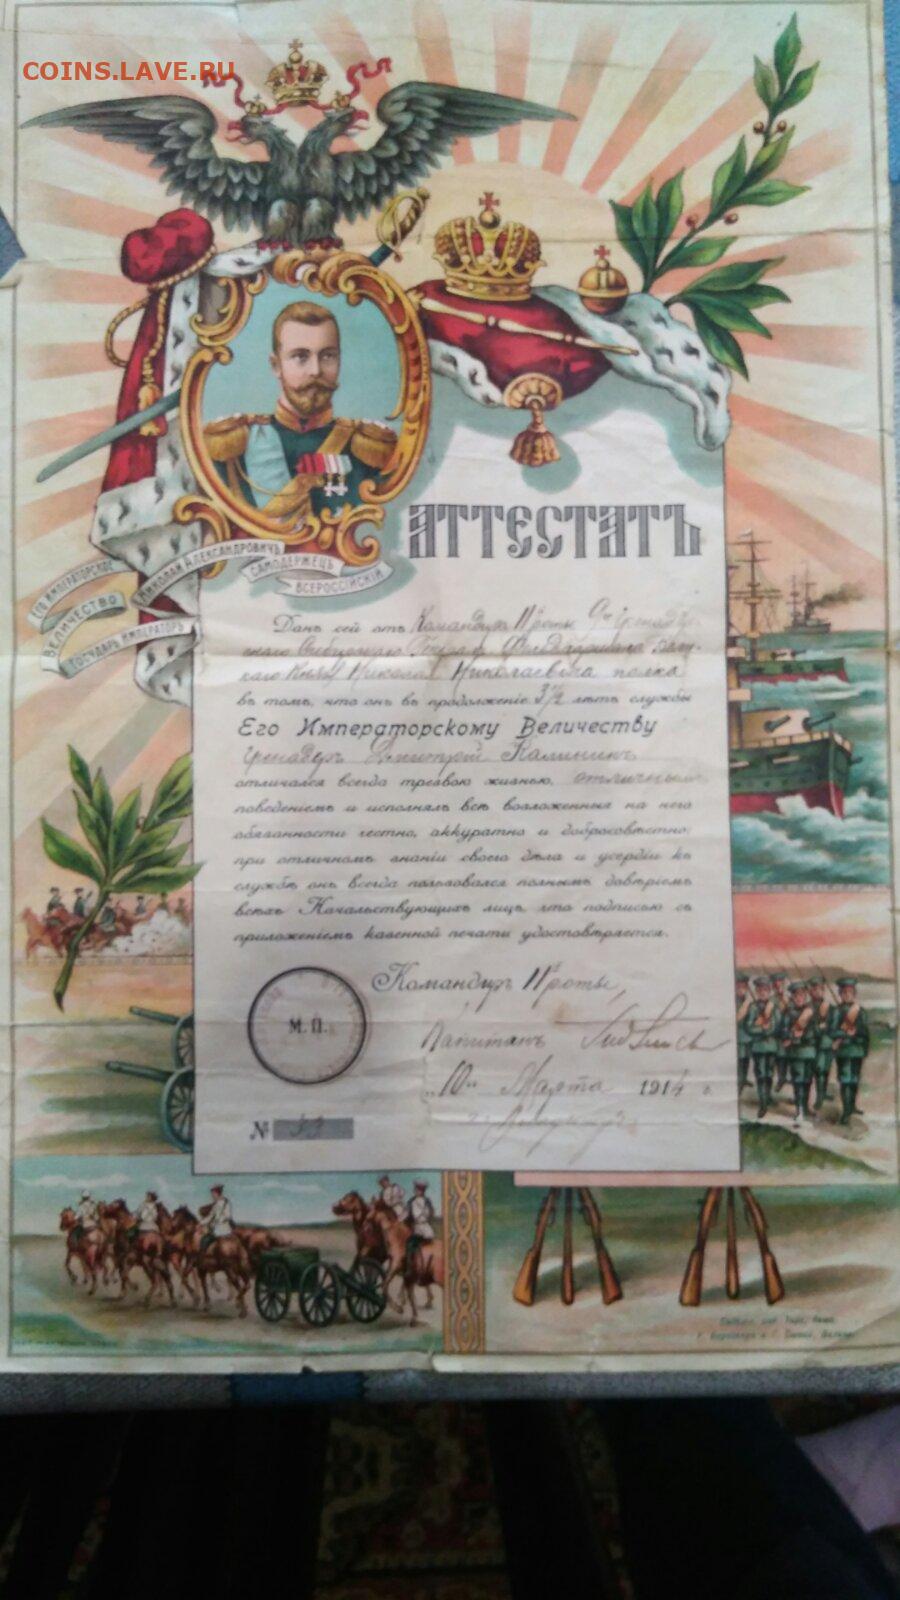 COINS.LAVE.RU
ЕГО ИМПЕРАТОРСКОЕ
ВЕЛИЧЕСТВО
ГОСУДАРЬ ИМПЕРАТОРЪ
НИКОЛАЙ АЛЕКСАНДРОВИЧЪ
САМОДЕРЖЕЦЪ
ВСЕРОССІЙСКІЙ
АТТЕСТАТЪ
Данъ сей отъ Командира 11 роты
Генерал Фельдмаршала Вели-
каго Князя Николая Николаевича полка
въ томъ, что онъ въ продолженіе 3 1/2 лѣтъ службы
Его Императорскому Величеству
Гренадеръ Дмитрій Калининъ
отличался всегда трезвою жизнью, отличнымъ
поведеніемъ и исполнялъ всѣ возложенныя на него
обязанности честно, аккуратно и добросовѣстно;
при отличномъ знаніи своего дѣла и усердіи къ
службѣ онъ всегда пользовался полнымъ довѣріемъ
всѣхъ Начальствующихъ лицъ, что подписью съ
приложеніемъ казенной печати удостовѣряется.
Командиръ 11 роты,
М. П.
Капитанъ
„10" Марта 1914 г.
№ 53